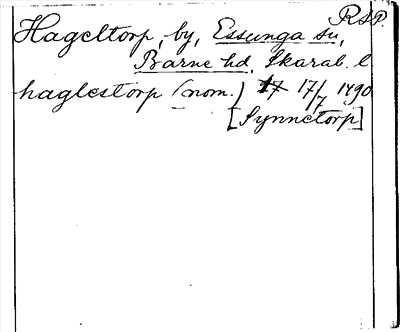 RSP.
Hageltorp, by, Essunga sn,
Barne hd, Skarab. l.
haglestorp (nom.) 17/7 1490
[Synnetorp]